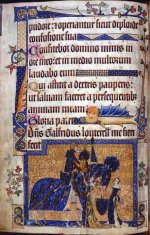 pudore: ⁊ operiantur sicut diploide
confusione sua
Confitebor domino nimis in
ore meo: et in medio multorum
laudabo eum
Qui astitit a dextris pauperis:
ut saluam faceret a persequentib;
animam meam
Gloria patri
Dn̄s Galfridus louterell me fieri
fecit